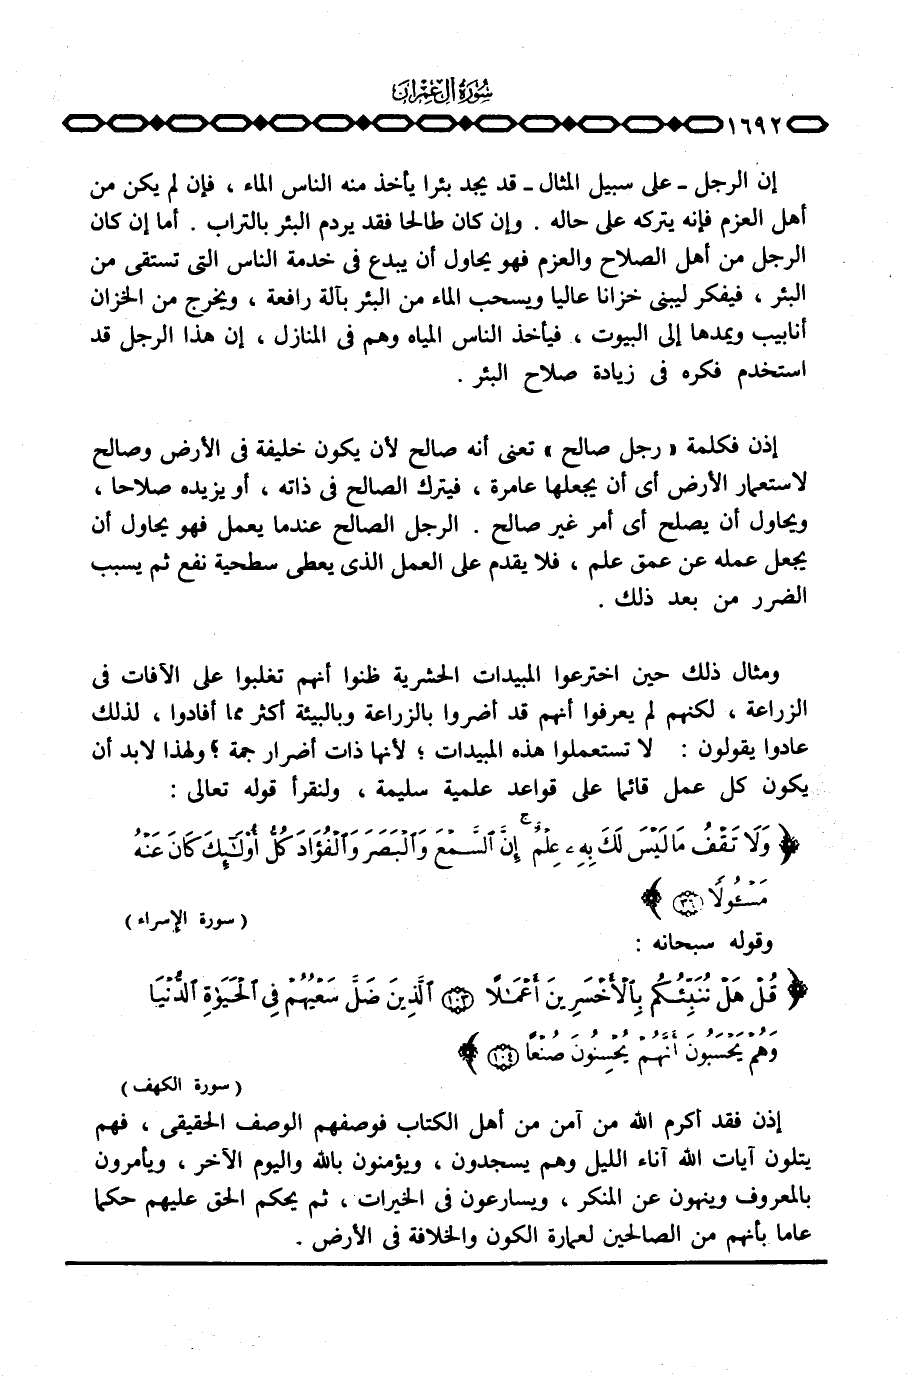 سُورَةُ آلِ عِمْرَانَ
١٦٩٢
إن الرجل - على سبيل المثال - قد يجد بئرا يأخذ منه الناس الماء ، فإن لم يكن من
أهل العزم فإنه يتركه على حاله . وإن كان طالحا فقد يردم البئر بالتراب . أما إن كان
الرجل من أهل الصلاح والعزم فهو يحاول أن يبدع فى خدمة الناس التى تستقى من
البئر ، فيفكر ليبنى خزانا عاليا ويسحب الماء من البئر بآلة رافعة ، ويخرج من الخزان
أنابيب ويمدها إلى البيوت ، فيأخذ الناس المياه وهم فى المنازل ، إن هذا الرجل قد
استخدم فكره فى زيادة صلاح البئر .
إذن فكلمة « رجل صالح » تعنى أنه صالح لأن يكون خليفة فى الأرض وصالح
لاستعمار الأرض أى أن يجعلها عامرة ، فيترك الصالح فى ذاته ، أو يزيده صلاحا ،
ويحاول أن يصلح أى أمر غير صالح . الرجل الصالح عندما يعمل فهو يحاول أن
يجعل عمله عن عمق علم ، فلا يقدم على العمل الذى يعطى سطحية نفع ثم يسبب
الضرر من بعد ذلك .
ومثال ذلك حين اخترعوا المبيدات الحشرية ظنوا أنهم تغلبوا على الآفات فى
الزراعة ، لكنهم لم يعرفوا أنهم قد أضروا بالزراعة وبالبيئة أكثر مما أفادوا ، لذلك
عادوا يقولون : لا تستعملوا هذه المبيدات ؛ لأنها ذات أضرار جمة ؟ ولهذا لابد أن
يكون كل عمل قائما على قواعد علمية سليمة ، ولنقرأ قوله تعالى :
﴿ وَلَا تَقْفُ مَا لَيْسَ لَكَ بِهِۦ عِلْمٌ ۚ إِنَّ ٱلسَّمْعَ وَٱلْبَصَرَ وَٱلْفُؤَادَ كُلُّ أُو۟لَٰٓئِكَ كَانَ عَنْهُ
مَسْـُٔولًا ٣٦ ﴾
( سورة الإسراء )
وقوله سبحانه :
﴿ قُلْ هَلْ نُنَبِّئُكُم بِٱلْأَخْسَرِينَ أَعْمَٰلًا ١٠٣ ٱلَّذِينَ ضَلَّ سَعْيُهُمْ فِى ٱلْحَيَوٰةِ ٱلدُّنْيَا
وَهُمْ يَحْسَبُونَ أَنَّهُمْ يُحْسِنُونَ صُنْعًا ١٠٤ ﴾
( سورة الكهف )
إذن فقد أكرم الله من آمن من أهل الكتاب فوصفهم الوصف الحقيقى ، فهم
يتلون آيات الله آناء الليل وهم يسجدون ، ويؤمنون بالله واليوم الآخر ، ويأمرون
بالمعروف وينهون عن المنكر ، ويسارعون فى الخيرات ، ثم يحكم الحق عليهم حكما
عاما بأنهم من الصالحين لعمارة الكون والخلافة فى الأرض .